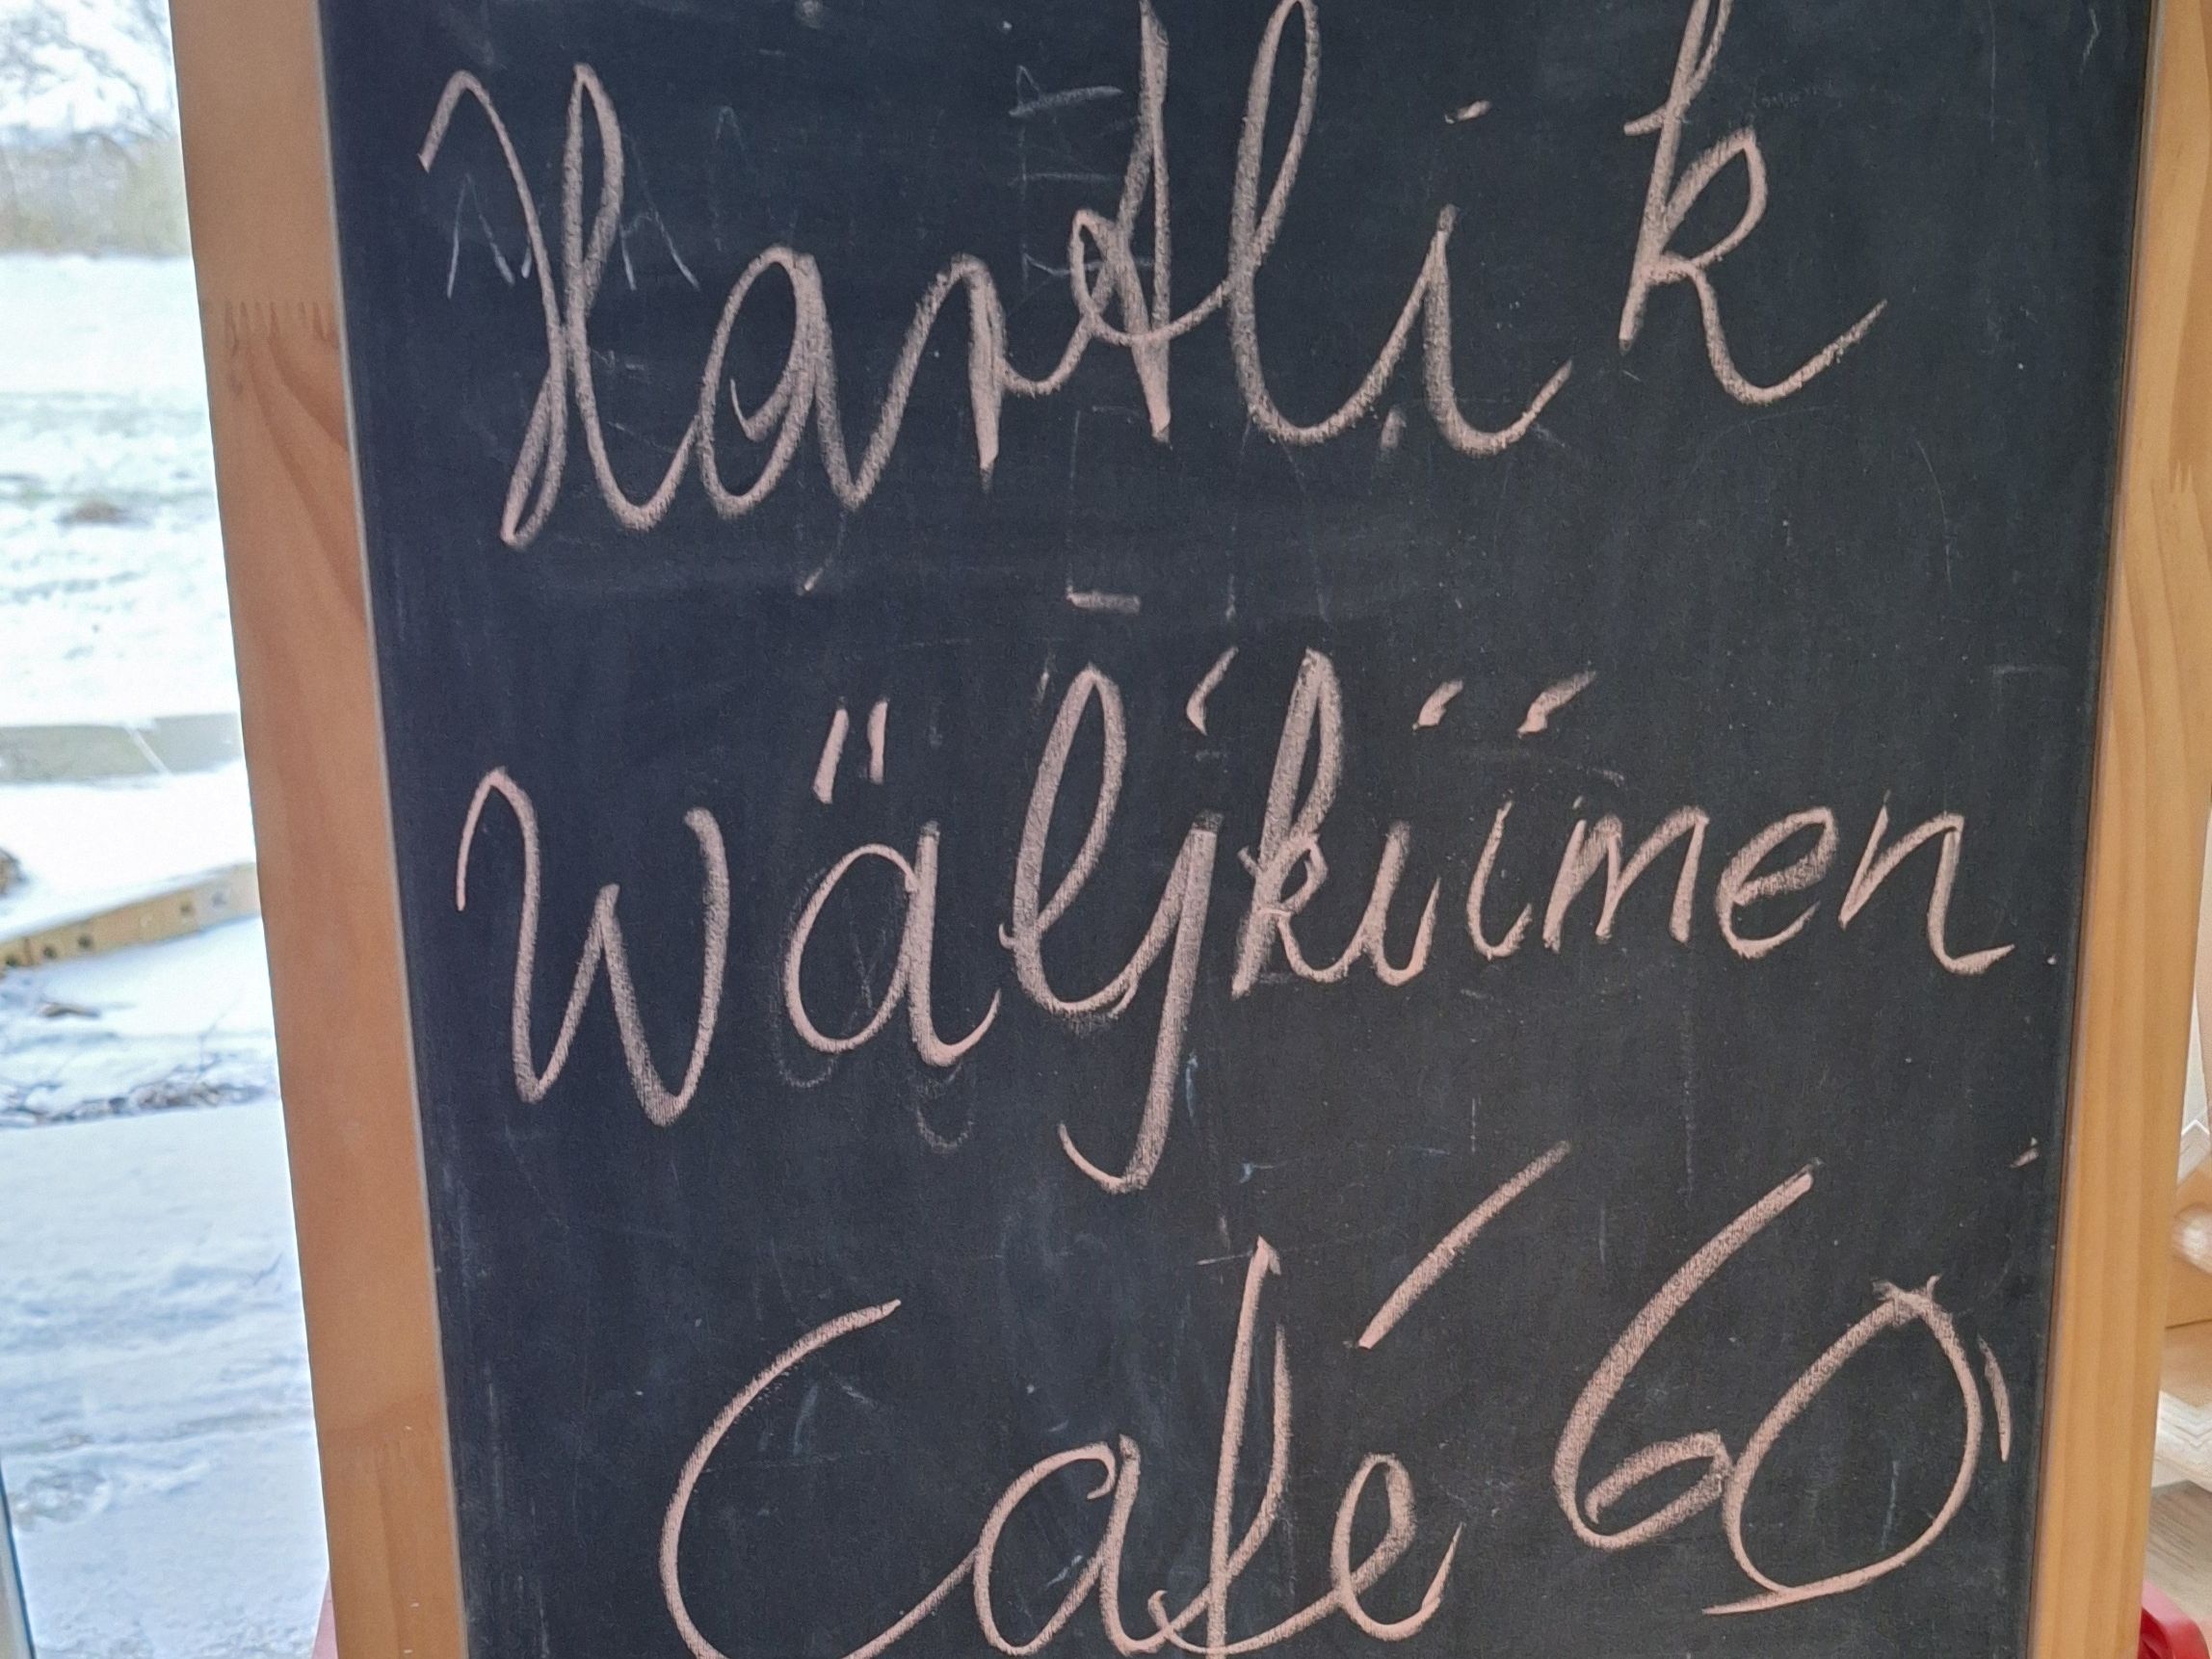 Hartlik
Wäljkiimen
Café 60